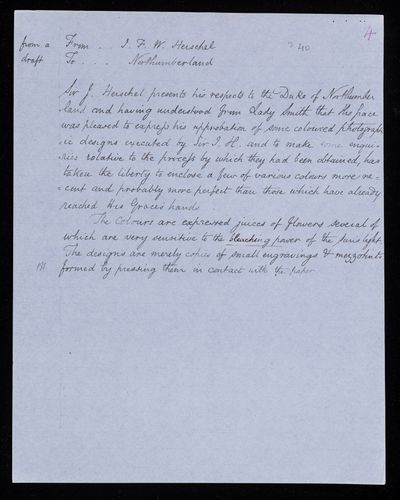 4
from a From . . J. F. W. Herschel ?40
draft To . . . . Northumberland
Sir J. Herschel presents his respects to the Duke of Northumber
land and having understood from Lady Smith that His Grace
was pleased to express his approbation of some coloured photograph-
ic designs executed by Sir J. H. and to make some enqui-
ries relative to the process by which they had been obtained, has
taken the liberty to enclose a few of various colours more re=
=cent and probably more perfect than those which have already
reached His Grace's hands
The Colours are expressed juices of flowers several of
which are very sensitive to the bleaching power of the sun's light.
The designs are merely copies of small engravings & mezzotints
formed by pressing them in contact with the paper